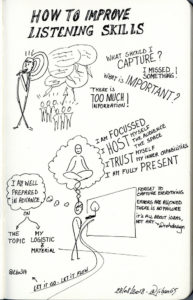 HOW TO IMPROVE
LISTENING SKILLS
WHAT SHOULD I
CAPTURE?
I MISSED
SOMETHING!
WHAT IS IMPORTANT?
THERE IS
TOO MUCH
INFORMATION!
I AM FOCUSSED,
I HOST MYSELF
THE AUDIENCE
THE SPACE
I TRUST MYSELF
MY INNER CAPABILITIES
I AM FULLY PRESENT
I AM WELL
PREPARED
IN ADVANCE
ON
THE
TOPIC
MY
LOGISTIC
&
MATERIAL
FORGET TO
CAPTURE EVERYTHING
ERRORS ARE ALLOWED
THERE IS NO FAILURE
IT'S ALL ABOUT IDEAS,
NOT ART
LET IT GO. LET IT FLOW